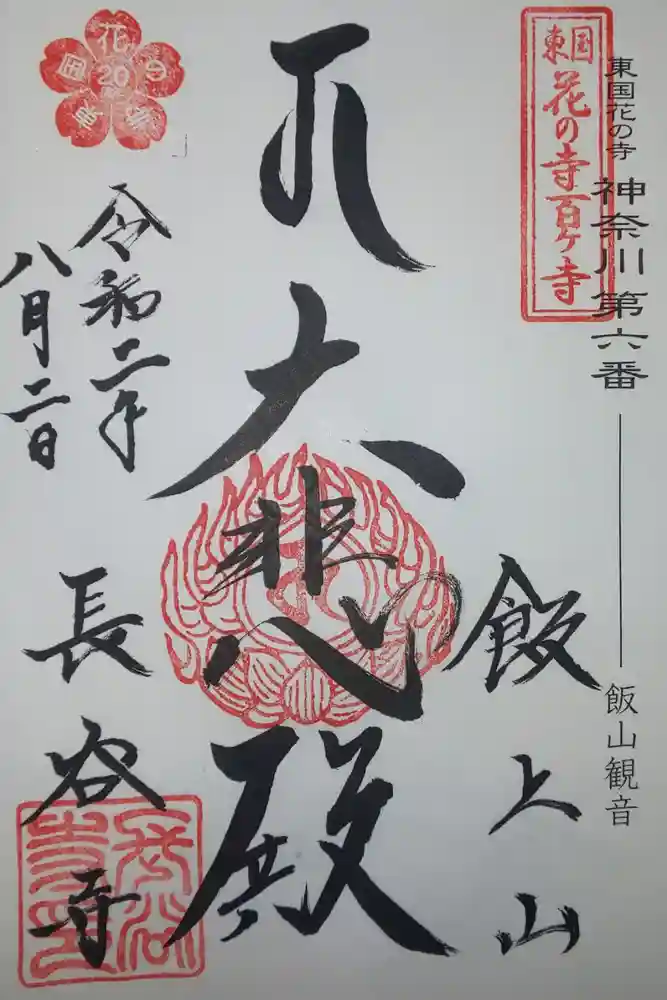 東国花の寺 神奈川 第六番
飯山観音
東国
花の寺百ケ寺
飯上山
大悲殿
令和二年
八月二日
長谷寺
花の寺
20